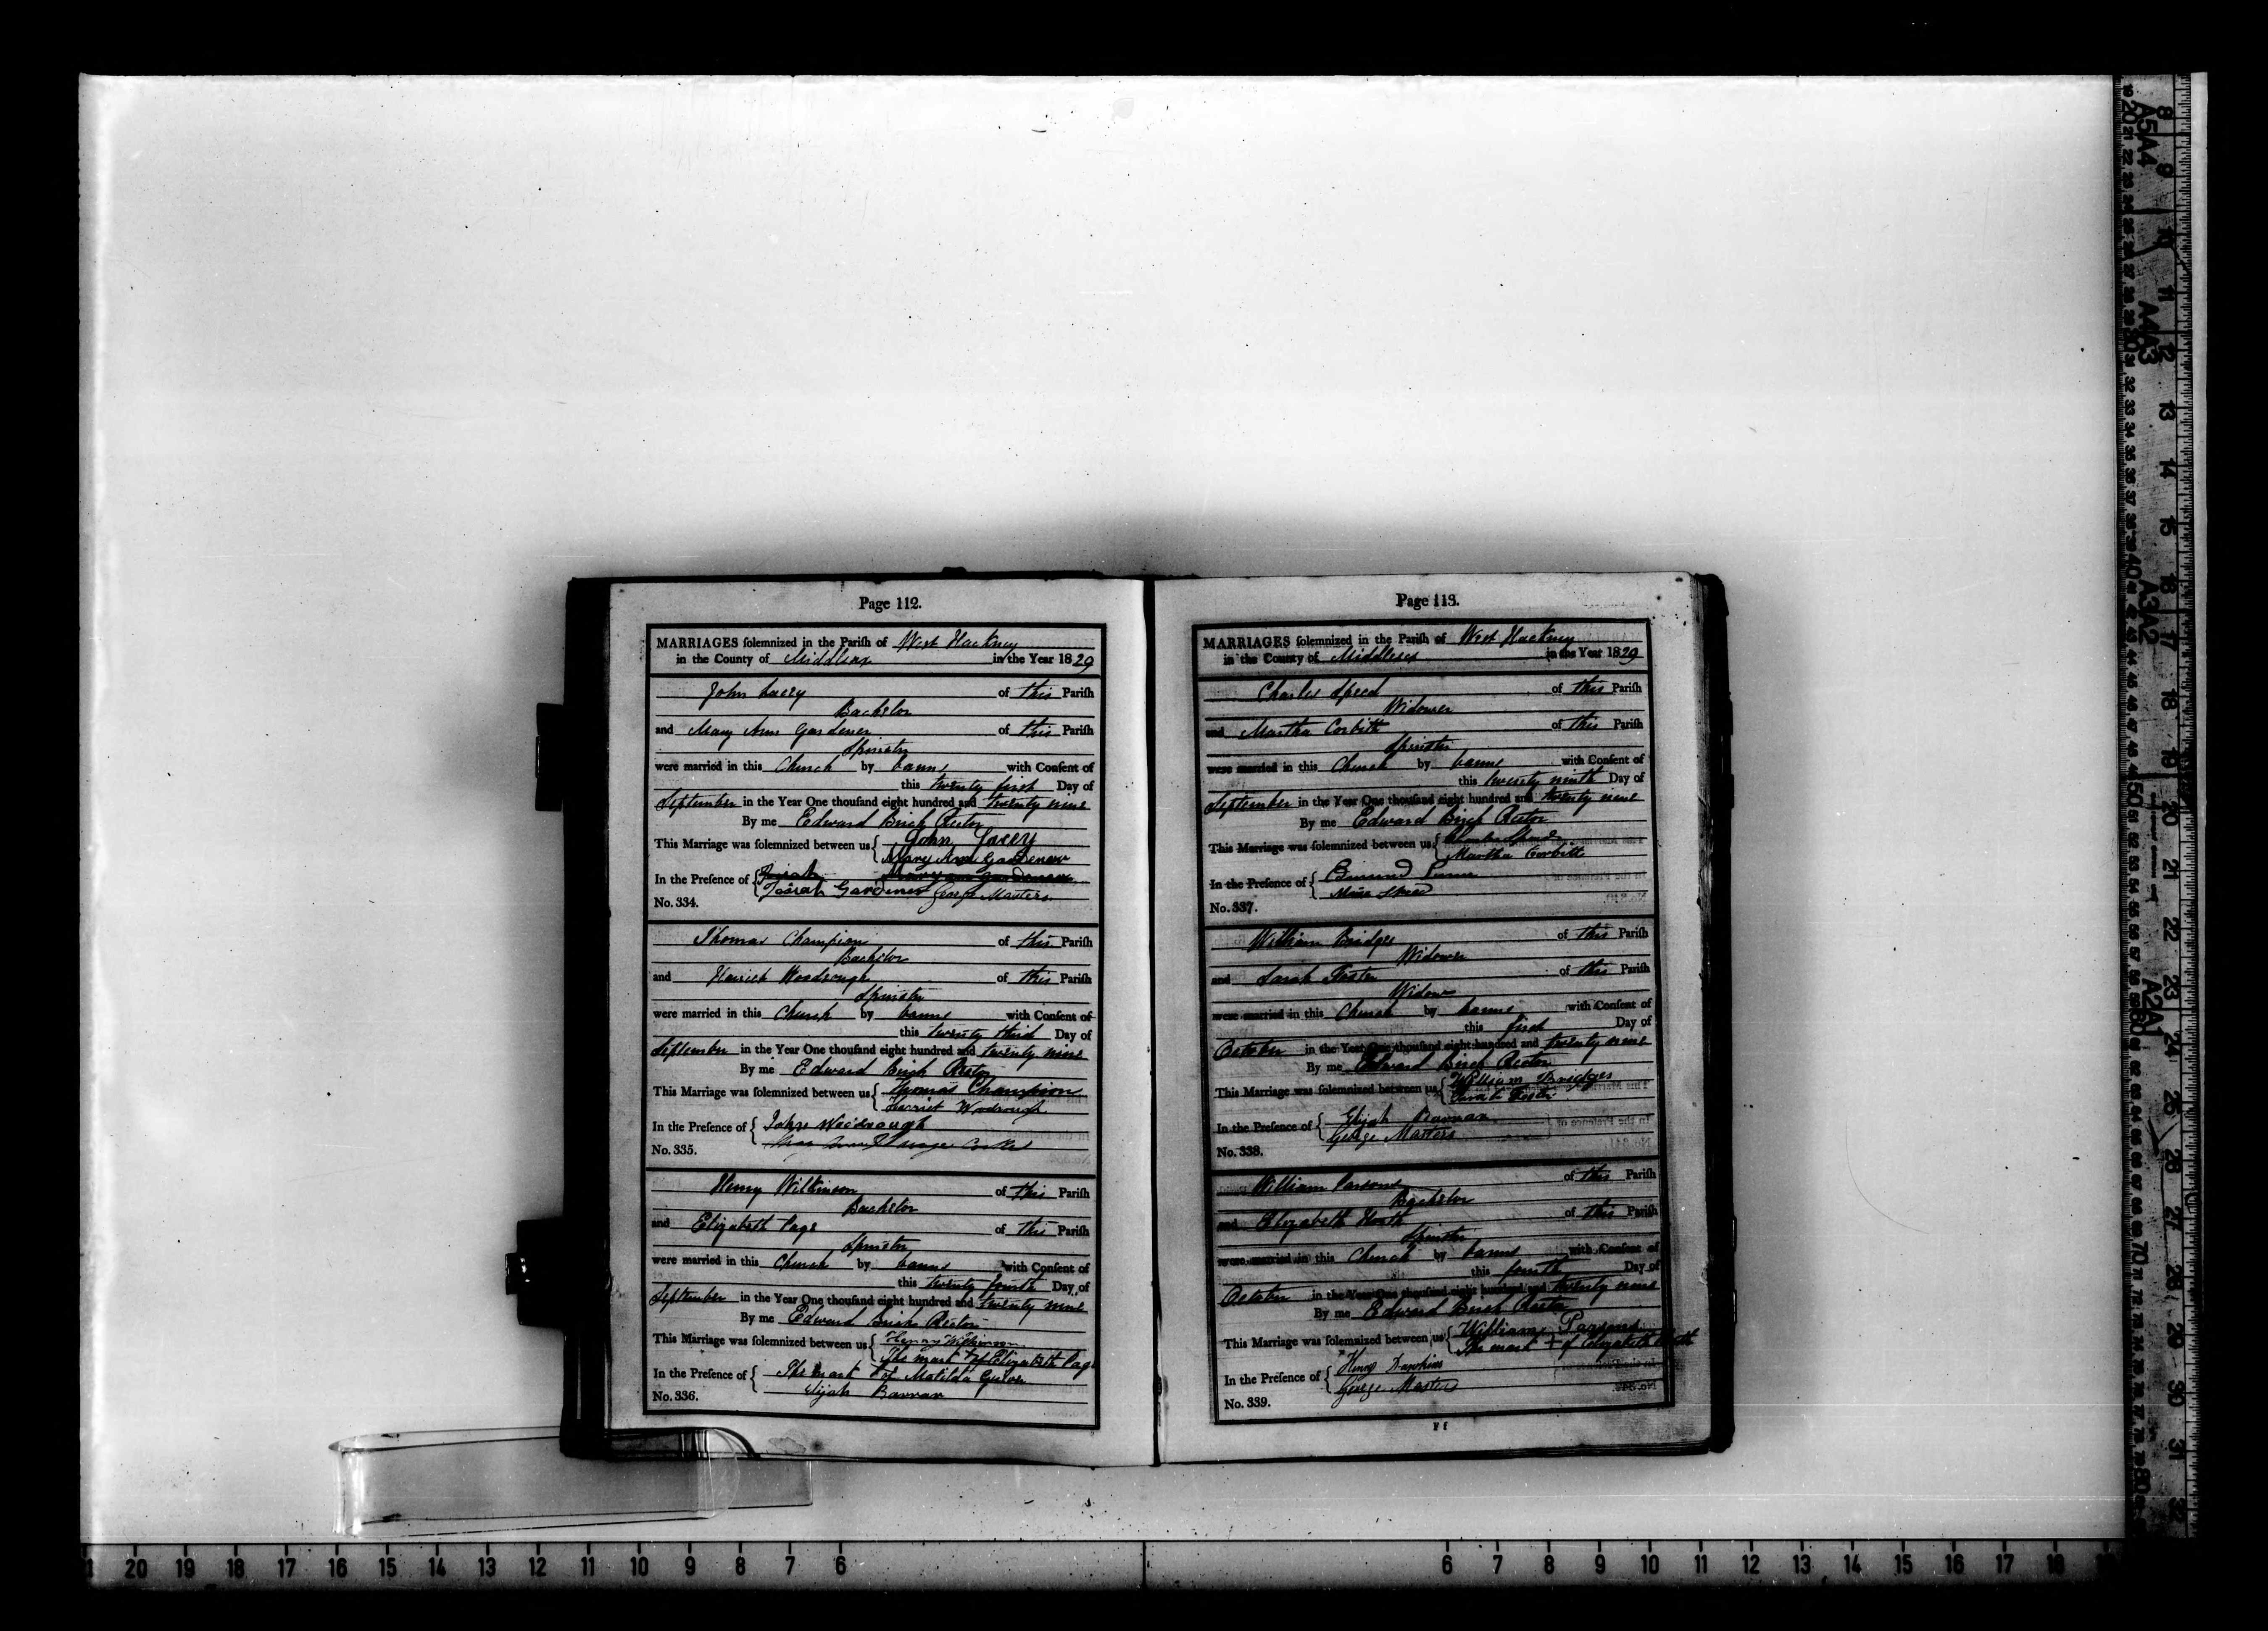 Page 112.
MARRIAGES solemnized in the Parish of West Hackney
in the County of Middlesex in the Year 1829
John Lacey of this Parish
Bachelor
and Mary Ann Gardener of this Parish
Spinster
were married in this Church by banns with Consent of
this twenty first Day of
September in the Year One thousand eight hundred and twenty nine
By me Edward Birch Rector
This Marriage was solemnized between us John Lacey
Mary Ann Gardener
In the Presence of Josiah Mary ann Gardener
Josiah Gardener George Masters
No. 334.
Thomas Champion of this Parish
Bachelor
and Harriet Woodrough of this Parish
Spinster
were married in this Church by banns with Consent of
this twenty third Day of
September in the Year One thousand eight hundred and twenty nine
By me Edward Birch Rector
This Marriage was solemnized between us Thomas Champion
Harriet Woodrough
In the Presence of John Woodrough
No. 335.
Henry Wilkinson of this Parish
Bachelor
and Elizabeth Page of this Parish
Spinster
were married in this Church by banns with Consent of
this twenty fourth Day of
September in the Year One thousand eight hundred and twenty nine
By me Edward Birch Rector
This Marriage was solemnized between us Henry Wilkinson
The mark + of Elizabeth Page
In the Presence of The mark + of Matilda
Elijah Barman
No. 336.
Page 113.
MARRIAGES solemnized in the Parish of West Hackney
in the County of Middlesex in the Year 1829
Charles Speed of this Parish
Widower
and Martha Corbitt of this Parish
Spinster
were married in this Church by banns with Consent of
this twenty ninth Day of
September in the Year One thousand eight hundred and twenty nine
By me Edward Birch Rector
This Marriage was solemnized between us Charles Speed
Martha Corbitt
In the Presence of
No. 337.
William Bridges of this Parish
Widower
and Sarah Foster of this Parish
Widow
were married in this Church by banns with Consent of
this first Day of
October in the Year One thousand eight hundred and twenty nine
By me Edward Birch Rector
This Marriage was solemnized between us William Bridges
Sarah Foster
In the Presence of Elijah Barman
George Masters
No. 338.
William Parsons of this Parish
Bachelor
and Elizabeth Heath of this Parish
Spinster
were married in this Church by banns with Consent of
this fourth Day of
October in the Year One thousand eight hundred and twenty nine
By me Edward Birch Rector
This Marriage was solemnized between us William Parsons
The mark + of Elizabeth Heath
In the Presence of Henry Dawkins
George Masters
No. 339.
F f
20 19 18 17 16 15 14 13 12 11 10 9 8 7 6 6 7 8 9 10 11 12 13 14 15 16 17 18